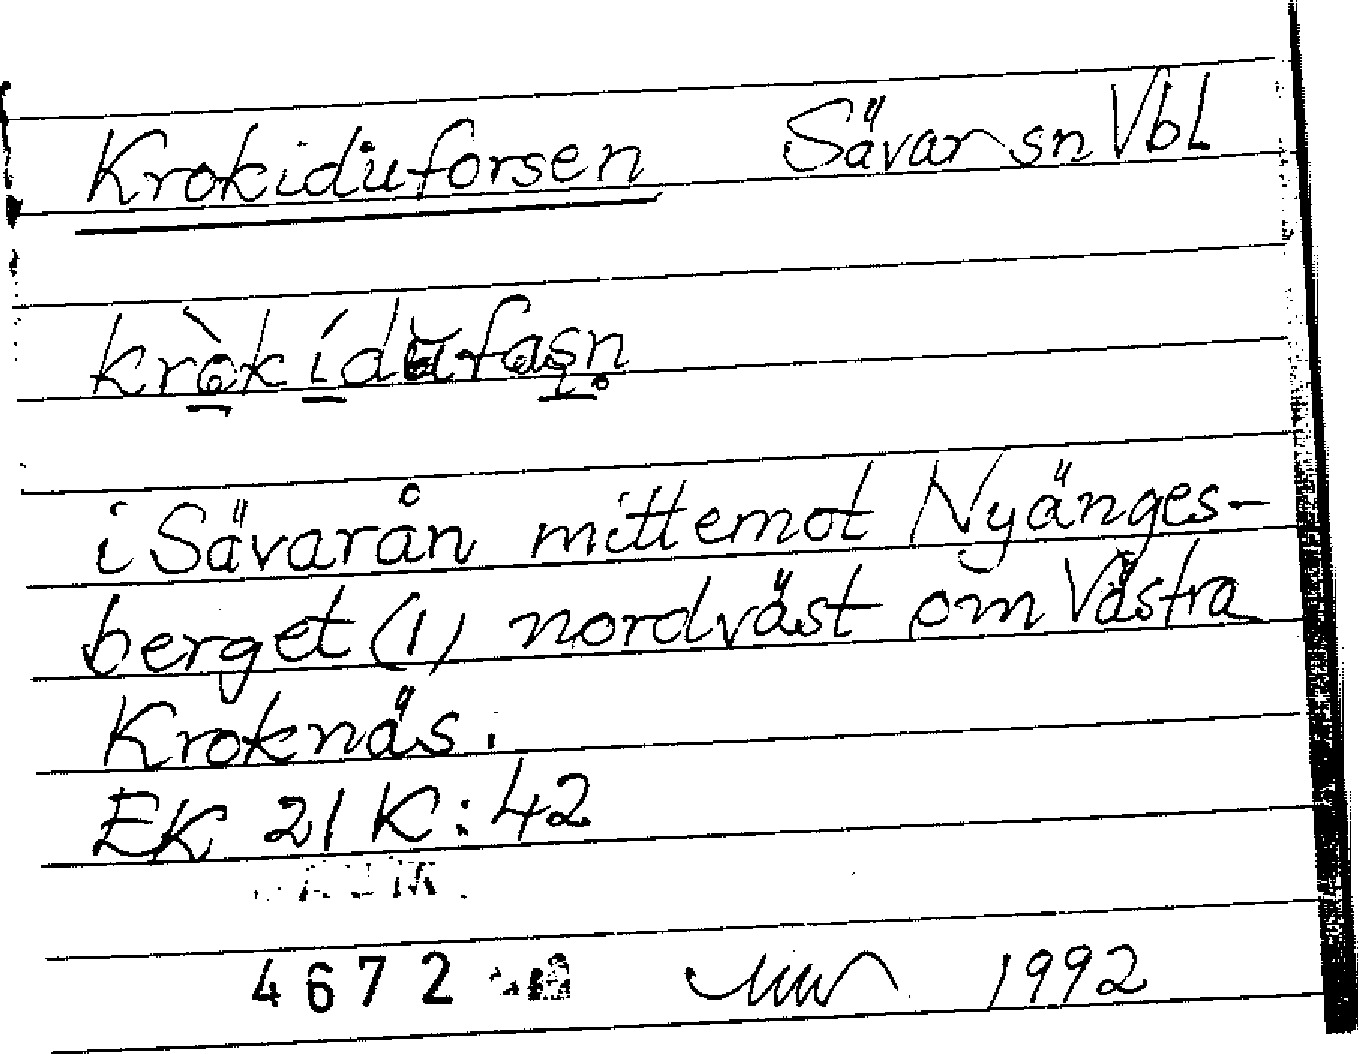 Krokiduforsen Sävar sn Vbl
i Sävarån mittemot Nyänges-
berget (1) nordväst om Västra
Kroknäs.
EK 21 K: 42
4672 1992